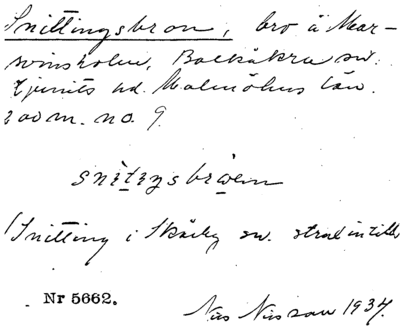 Snittingsbron, bro å Mar-
vinsholm, Balkåkra sn.
Ljunits hd. Malmöhus län.
200 m. no. 9.
snitiŋsbrøen
(Snitting i Skårby sn. strax intill
Nr 5662.
Nils Nilsson 1937.